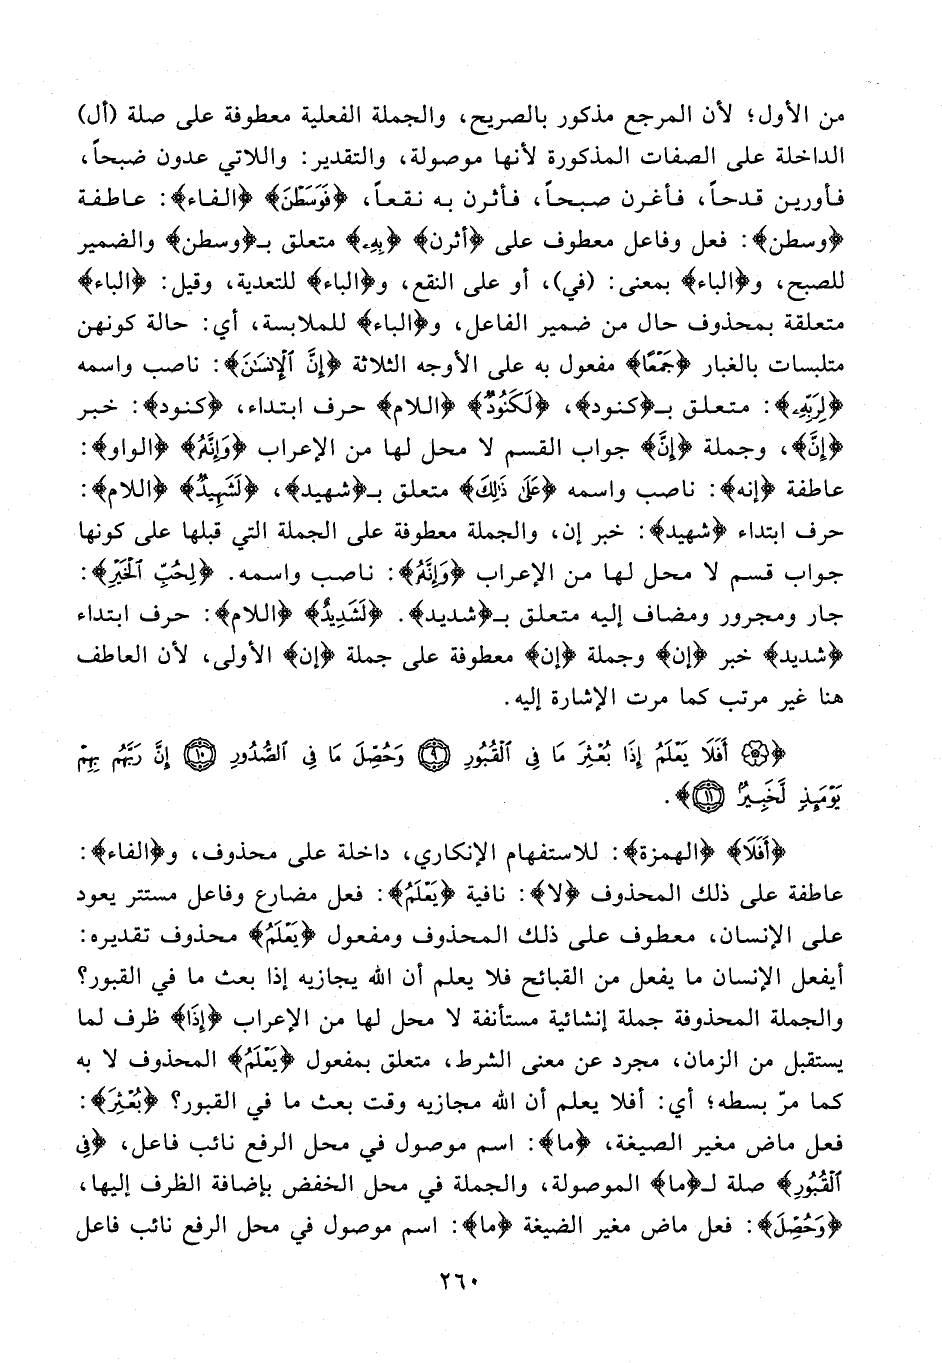 من الأول؛ لأن المرجع مذكور بالصريح، والجملة الفعلية معطوفة على صلة (أل)
الداخلة على الصفات المذكورة لأنها موصولة، والتقدير: واللاتي عدون ضبحاً،
فأورين قدحاً، فأغرن صبحاً، فأثرن به نقعاً، ﴿فَوَسَطْنَ﴾ ﴿الفاء﴾: عاطفة
﴿وسطن﴾: فعل وفاعل معطوف على ﴿أثرن﴾ ﴿بِهِۦ﴾ متعلق بـ﴿وسطن﴾ والضمير
للصبح، و﴿الباء﴾ بمعنى: (في)، أو على النقع، و﴿الباء﴾ للتعدية، وقيل: ﴿الباء﴾
متعلقة بمحذوف حال من ضمير الفاعل، و﴿الباء﴾ للملابسة، أي: حالة كونهن
متلبسات بالغبار ﴿جَمْعًا﴾ مفعول به على الأوجه الثلاثة ﴿إِنَّ ٱلْإِنسَٰنَ﴾: ناصب واسمه
﴿لِرَبِّهِۦ﴾: متعلق بـ﴿كنود﴾، ﴿لَكَنُودٌ﴾ ﴿اللام﴾ حرف ابتداء، ﴿كنود﴾: خبر
﴿إِنَّ﴾، وجملة ﴿إِنَّ﴾ جواب القسم لا محل لها من الإعراب ﴿وَإِنَّهُۥ﴾ ﴿الواو﴾:
عاطفة ﴿إنه﴾: ناصب واسمه ﴿عَلَىٰ ذَٰلِكَ﴾ متعلق بـ﴿شهيد﴾، ﴿لَشَهِيدٌ﴾ ﴿اللام﴾:
حرف ابتداء ﴿شهيد﴾: خبر إن، والجملة معطوفة على الجملة التي قبلها على كونها
جواب قسم لا محل لها من الإعراب ﴿وَإِنَّهُۥ﴾: ناصب واسمه. ﴿لِحُبِّ ٱلْخَيْرِ﴾:
جار ومجرور ومضاف إليه متعلق بـ﴿شديد﴾. ﴿لَشَدِيدٌ﴾ ﴿اللام﴾: حرف ابتداء
﴿شديد﴾ خبر ﴿إن﴾ وجملة ﴿إن﴾ معطوفة على جملة ﴿إن﴾ الأولى، لأن العاطف
هنا غير مرتب كما مرت الإشارة إليه.
﴿۞ أَفَلَا يَعْلَمُ إِذَا بُعْثِرَ مَا فِي ٱلْقُبُورِ ٩ وَحُصِّلَ مَا فِي ٱلصُّدُورِ ١٠ إِنَّ رَبَّهُم بِهِمْ
يَوْمَئِذٍ لَّخَبِيرٌۢ ١١﴾.
﴿أَفَلَا﴾ ﴿الهمزة﴾: للاستفهام الإنكاري، داخلة على محذوف، و﴿الفاء﴾:
عاطفة على ذلك المحذوف ﴿لا﴾: نافية ﴿يَعْلَمُ﴾: فعل مضارع وفاعل مستتر يعود
على الإنسان، معطوف على ذلك المحذوف ومفعول ﴿يَعْلَمُ﴾ محذوف تقديره:
أيفعل الإنسان ما يفعل من القبائح فلا يعلم أن الله يجازيه إذا بعث ما في القبور؟
والجملة المحذوفة جملة إنشائية مستأنفة لا محل لها من الإعراب ﴿إِذَا﴾ ظرف لما
يستقبل من الزمان، مجرد عن معنى الشرط، متعلق بمفعول ﴿يَعْلَمُ﴾ المحذوف لا به
كما مرّ بسطه؛ أي: أفلا يعلم أن الله مجازيه وقت بعث ما في القبور؟ ﴿بُعْثِرَ﴾:
فعل ماض مغير الصيغة، ﴿ما﴾: اسم موصول في محل الرفع نائب فاعل، ﴿فِي
ٱلْقُبُورِ﴾ صلة لـ﴿ما﴾ الموصولة، والجملة في محل الخفض بإضافة الظرف إليها،
﴿وَحُصِّلَ﴾: فعل ماض مغير الضيغة ﴿ما﴾: اسم موصول في محل الرفع نائب فاعل
٢٦٠